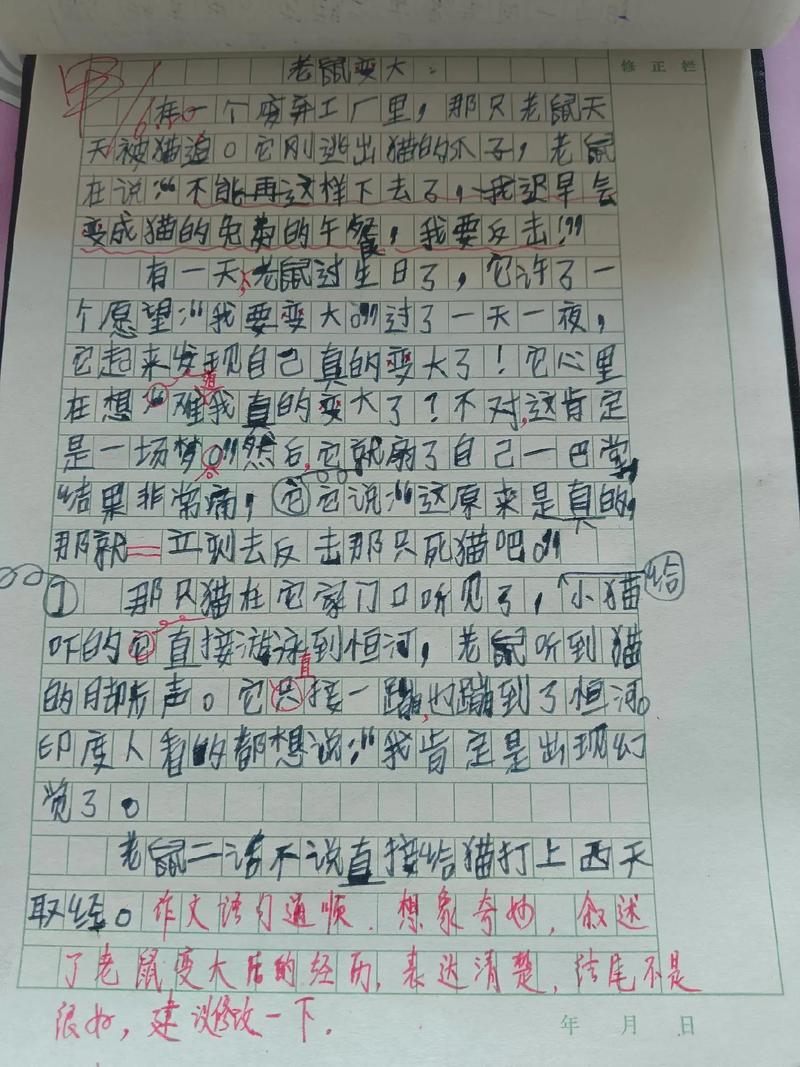 老鼠变大
修正栏
在一个废弃工厂里，那只老鼠天
天被猫追。它刚逃出猫的爪子，老鼠
在说：“不能再这样下去了，我迟早会
变成猫的免费的午餐，我要反击！”
有一天，老鼠过生日了，它许了一
个愿望：“我要变大。”过了一天一夜，
它起来发现自己真的变大了！它心里
道
在想“难我真的变大了？不对，这肯定
是一场梦。”然后，它就扇了自己一巴掌，
结果非常痛，它它说：“这原来是真的，
那就 立刻去反击那只死猫吧。”
那只猫在它家门口听见了，小猫
给
吓的它直接游泳到恒河，老鼠听到猫
直
的脚步声。它只接一蹦，也蹦到了恒河。
印度人看的都想说：“我肯定是出现幻
觉了。
老鼠二话不说直接给猫打上西天
取经。作文语句通顺，想象奇妙，叙述
了老鼠变大后的经历，表达清楚，结尾不是
很好，建议修改一下。
年 月 日